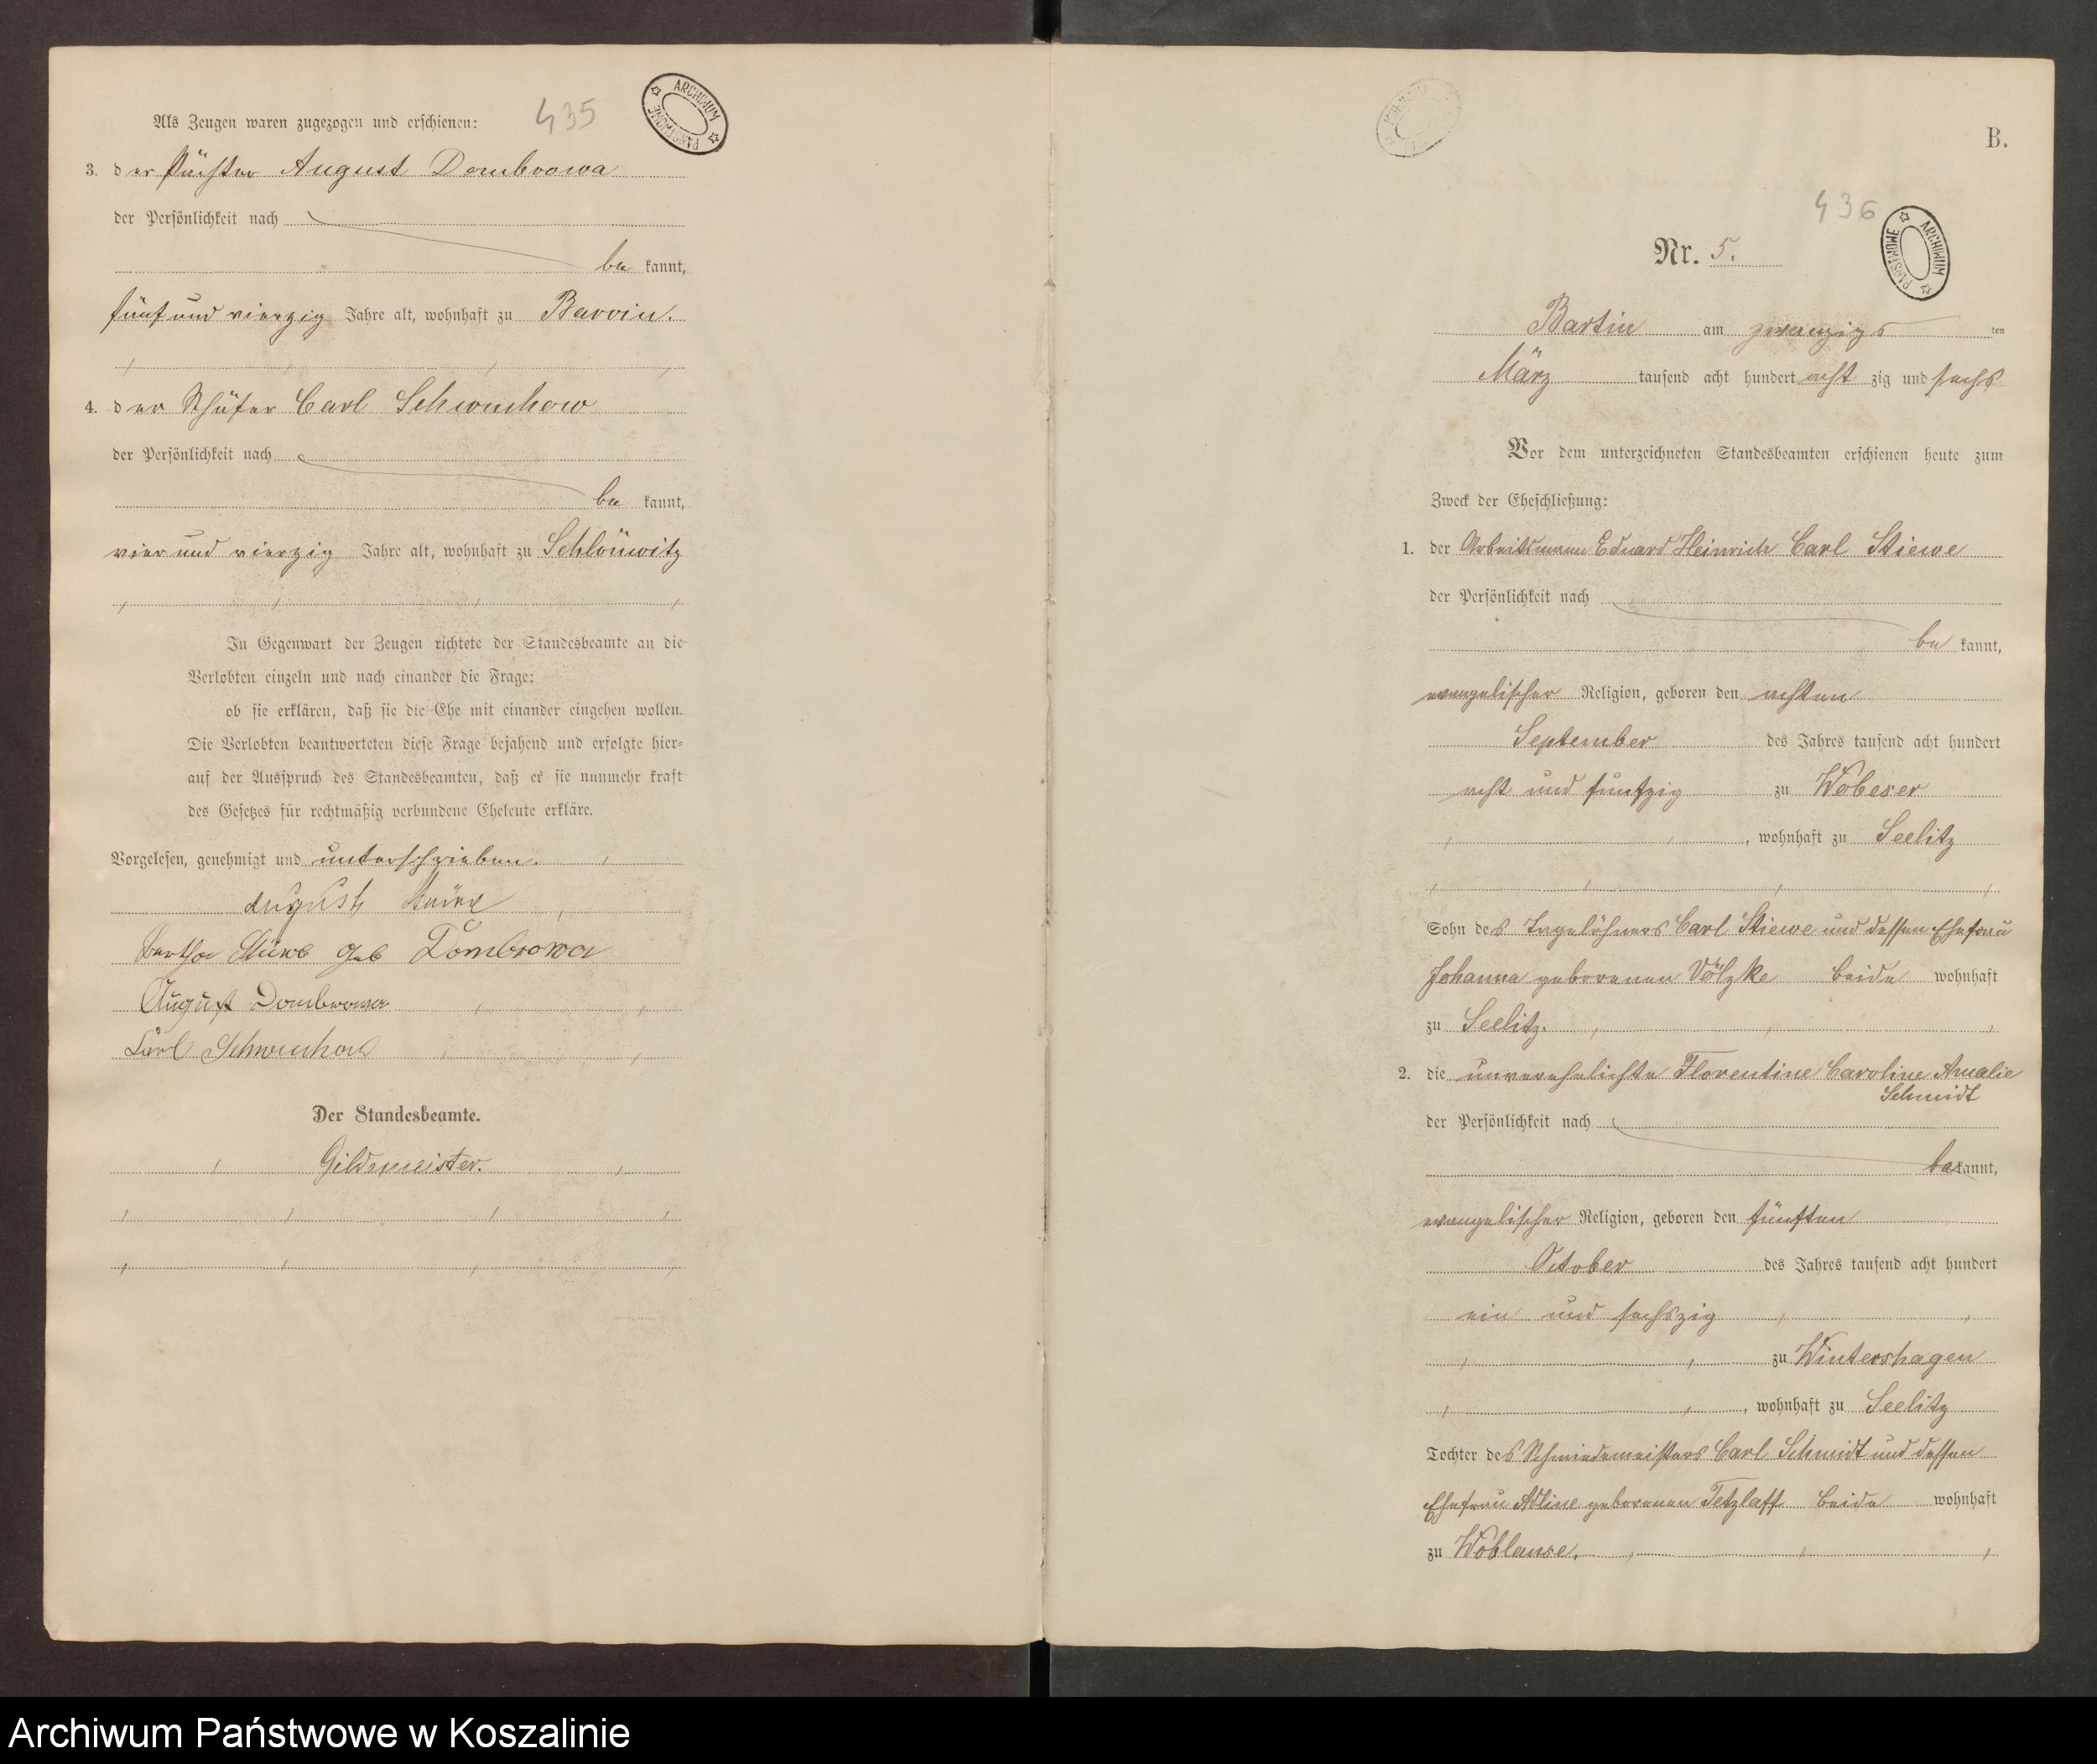 435
ARCHIWUM PAŃSTWOWE
Als Zeugen waren zugezogen und erschienen:
3. der August Dombrowa
der Persönlichkeit nach
be kannt,
fünf und vierzig Jahre alt, wohnhaft zu Barvin.
4. der Schäfer Carl Schwuchow
der Persönlichkeit nach
be kannt,
vier und vierzig Jahre alt, wohnhaft zu Schlönwitz
In Gegenwart der Zeugen richtete der Standesbeamte an die
Verlobten einzeln und nach einander die Frage:
ob sie erklären, daß sie die Ehe mit einander eingehen wollen.
Die Verlobten beantworteten diese Frage bejahend und erfolgte hier-
auf der Ausspruch des Standesbeamten, daß er sie nunmehr kraft
des Gesetzes für rechtmäßig verbundene Eheleute erkläre.
Vorgelesen, genehmigt und unterschrieben.
August
geb Dombrowa
August Dombrowa
Carl Schwuchow
Der Standesbeamte.
Gildemeister.
B.
436
ARCHIWUM PAŃSTWOWE
Nr. 5.
Bartin am zwanzigsten
März tausend acht hundert acht zig und sechs
Vor dem unterzeichneten Standesbeamten erschienen heute zum
Zweck der Eheschließung:
1. der Arbeitsmann Eduard Heinrich Carl Stiewe
der Persönlichkeit nach
be kannt,
evangelischer Religion, geboren den achten
September des Jahres tausend acht hundert
acht und funfzig zu Wobeser
, wohnhaft zu Seelitz
Sohn des Tagelöhners Carl Stiewe und dessen Ehefrau
Johanna geborenen Völzke beide wohnhaft
zu Seelitz.
2. die unverehelichte Florentine Caroline Amalie
Schmidt
der Persönlichkeit nach
be kannt,
evangelischer Religion, geboren den fünften
October des Jahres tausend acht hundert
ein und sechszig
zu Wintershagen
, wohnhaft zu Seelitz
Tochter des Schmiedemeisters Carl Schmidt und dessen
Ehefrau Adline geborenen Tetzlaff beide wohnhaft
zu Woblanse.
Archiwum Państwowe w Koszalinie